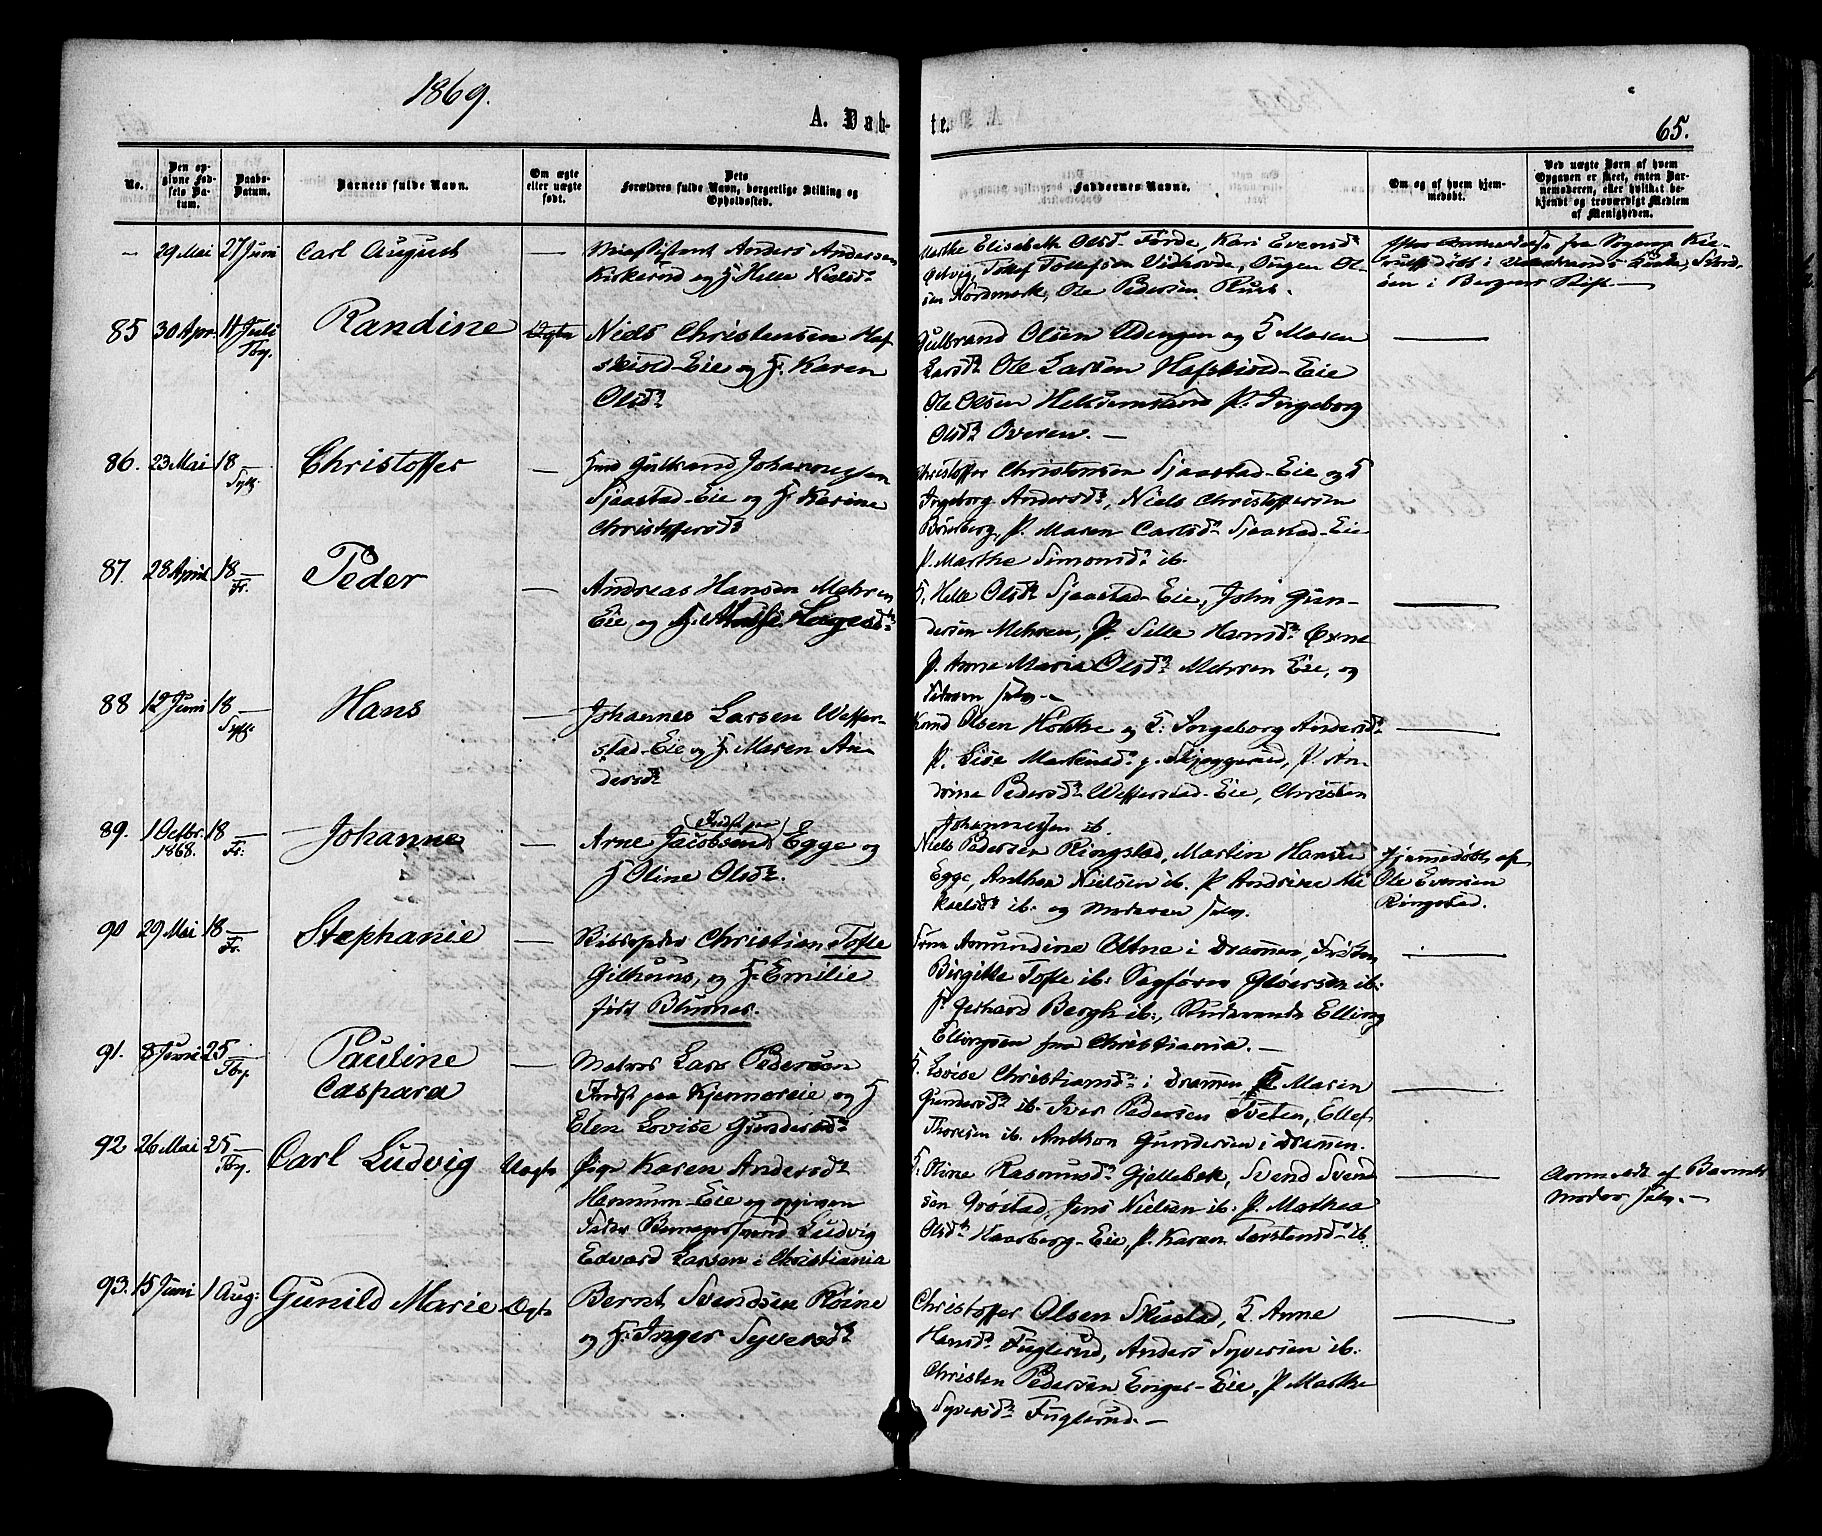 1869.
A. Døb-
te.
65.
No.
Den op-
givne Fød-
sels Da-
tum.
Daabs-
Datum.
Barnets fulde Navn.
Om ægte
eller uægte
født.
Dets
Forældres fulde Navn, borgerlige Stilling og
Opholdssted.
Faddernes Navne.
Om og af hvem hjem-
medøbt.
Ved uægte Barn af hvem
Opgaven er skeet, enten Bar-
nemoderen, eller hvilket be-
kjendt og troværdigt Medlem
af Menigheden.
— 29 Mai 27 Juni Carl August — Anders Andersen
Kirkerud og H Helle Nielsd.
Marthe Elisabeth Olsd. Førde, Kari Evensd.
Tollef Tollefsen
Nordmark, Ole Pedersen
fra Sogнep.
i Bergens Stift. —
85 30 Apr. 11 Juli Randine Ægte Niels Christensen Haf-
Tby.
skiold-Eie og H. Karen
Olsd.
Gulbrand Olsen Ødengen og H Maren
Larsd. Ole Larsen Hafskiold-Eie
Ole Olsen P. Ingeborg
Olsd. Overen. —
86. 23 Mai 18 — Christoffer — Gulbrand Johannesen
Syll.
Sjaastad-Eie og H. Karine
Christoffersd.
Christoffer Christensen Sjaastad-Eie og H
Ingeborg Andersd., Niels Christoffersen
P. Maren Carlsd. Sjaastad-Eie
P. Marthe Simonsd. ib.
87. 28 April 18 — Peder — Andreas Hansen Mehren
Fr.
Eie, og H.
H. Helle Olsd. Sjaastad-Eie, John Gun-
dersen Mehren, P. Sille Hansd. Øxne
P. Anne Maria Olsd. Mehren Eie, og
Faderen selv. —
88 12 Juni 18 — Hans — Johannes Larsen Weffer-
Syll.
stad-Eie og H. Maren An-
dersd.
Knud Olsen og H: Ingeborg Andersd.
P. Lise P. An-
drine Pedersd. Wefferstad-Eie, Christen
Johannesen ib.
89. 1 Octbr. 18 — Johanne — Arne Jacobsen (Indst paa) Egge og
1868. Fr:
H Oline Olsd.
Niels Pedersen Ringstad, Martin Hansen
Egge, Anthon Nielsen ib. P Andrine Mi-
kaelsd. ib. og Moderen selv.
Hjemmedøbt af
Ole Evensen
Ringstad.
90 29 Mai 18 — Stephanie — Christian Tofte
Fr.
Gilhuus, og H. Emilie
født Blumer.
Amundine i Drammen, Frøken
Birgitte Tofte ib: Sagfører Gløersen ib:
Gerhard Bergh ib:, Studerende Elling
Ellingsen fra Christiania. —
91. 8 Juni 25 — Pauline — Matros Lars Pedersen
Tby.
Caspara Indst paa Kjennereie og H
Elen Lovise Gundersd.
H. Lovise Christiansd. i Drammen P Maren
Gundersd. ib. Iver Pedersen Tveten, Ellef
Thoresen ib. Anthon Gundersen i Drammen.
92 26 Mai 25 — Carl Ludvig Uægte Pige Karen Andersd.
Tby.
Hennum-Eie og opgiven
Fader Ludvig
Edvard Larsen i Christiania
H. Oline Rasmusd. Gjellebæk, Svend Svend-
sen Grøstad, Jens Nielsen ib. P. Mathea
Olsd. Haarberg-Eie, P. Karen Torstensd. ib.
Anmeldt af Barnets
Moder selv. —
93. 15 Juni 1 Aug: Gunild Marie Ægte Bernt Svendsen Røine
og H. Inger Syversd.
Christoffer Olsen Skustad, H. Anne
Hansd. Fuglerud, Anders Syversen ib.
Christen Pedersen Enger-Eie, P. Marthe
Syversd. Fuglerud. —